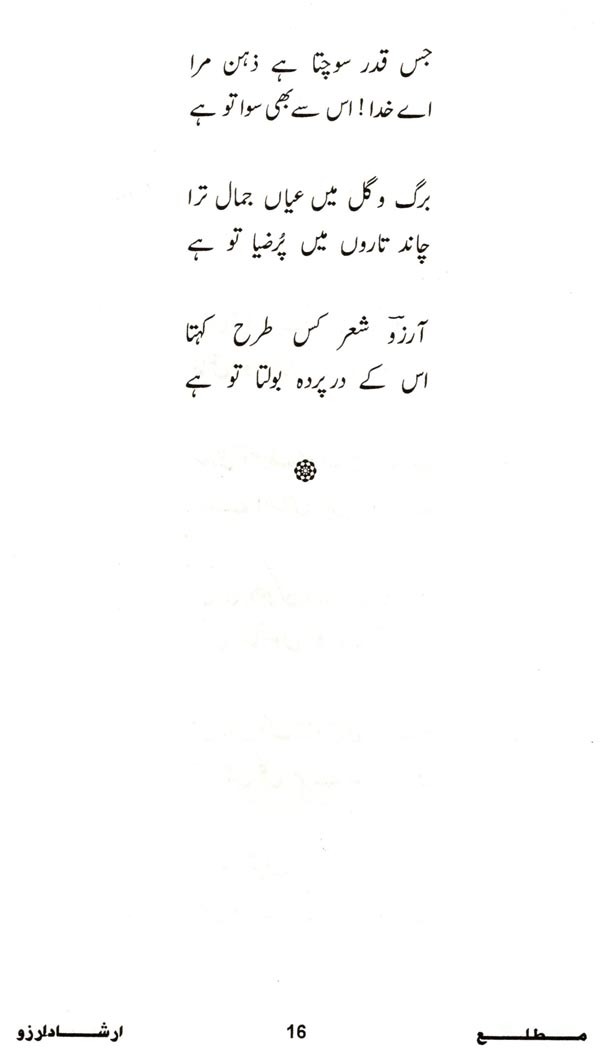 جس قدر سوچتا ہے ذہن مرا
اے خدا! اس سے بھی سوا تو ہے
برگ و گل میں عیاں جمال ترا
چاند تاروں میں پُرضیا تو ہے
آرزوؔ شعر کس طرح کہتا
اس کے در پردہ بولتا تو ہے
مطلع 16 ارشاد ارزو